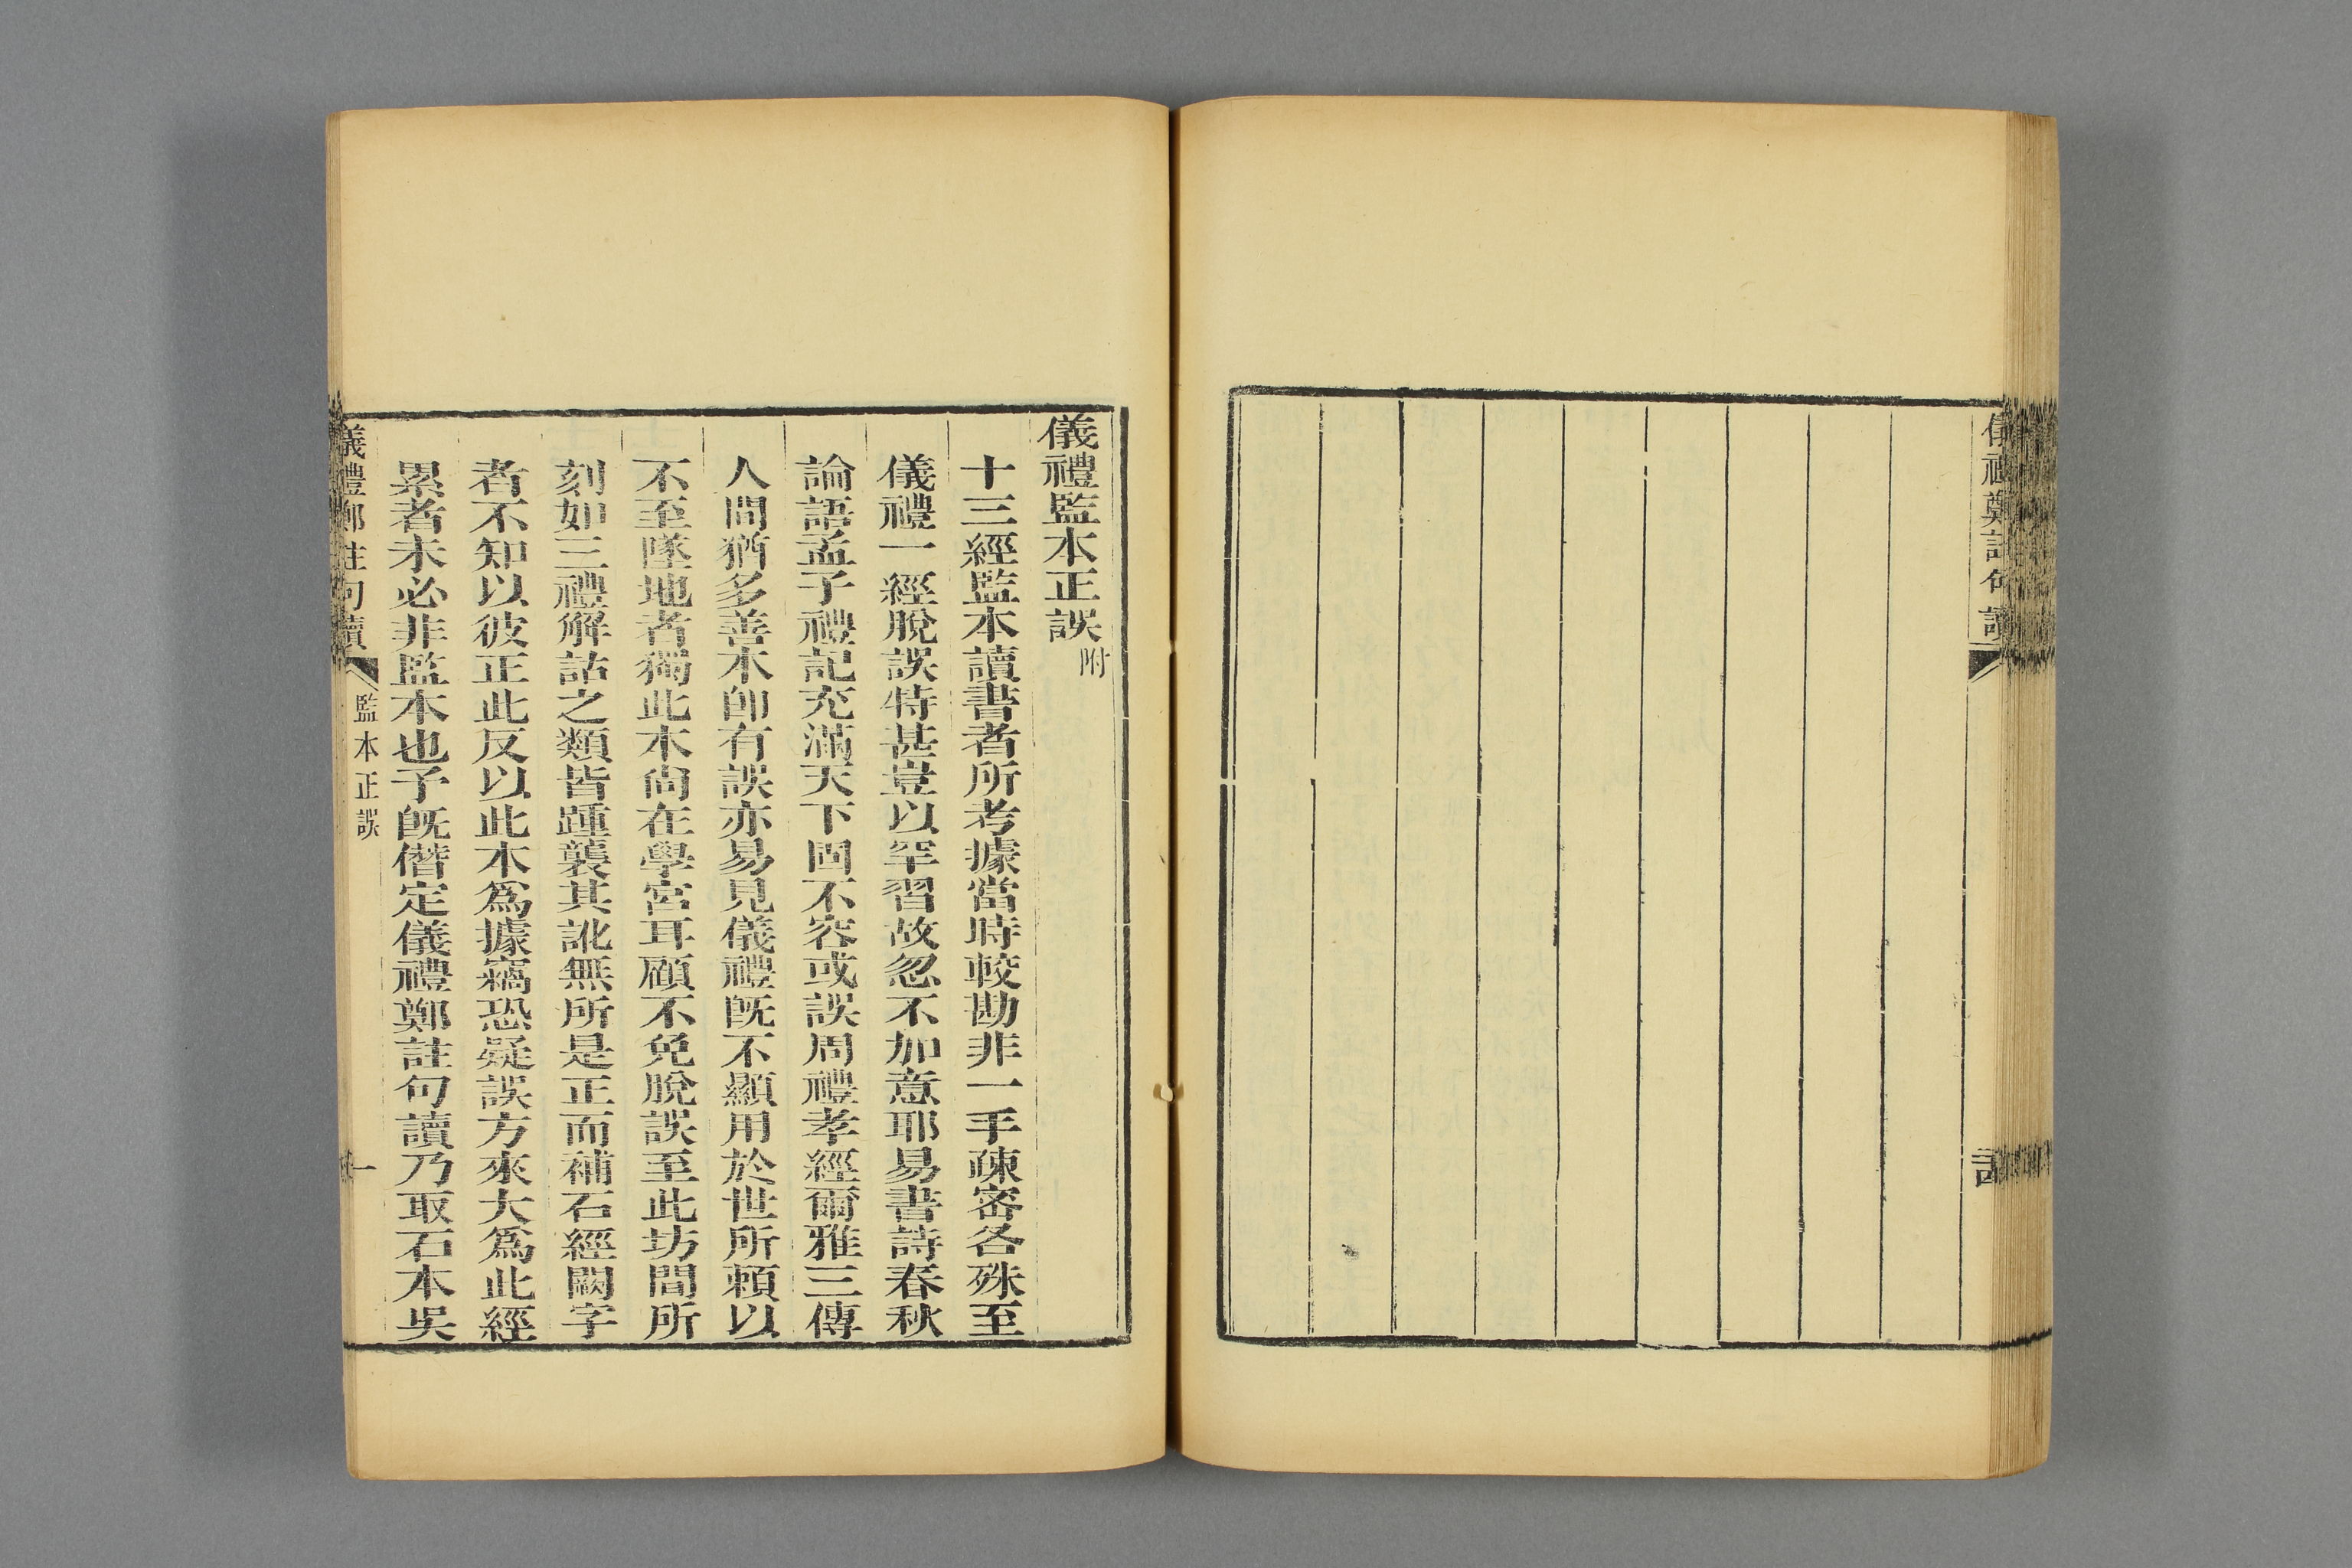 儀禮鄭註句讀
儀禮監本正誤附
十三經監本讀書者所考據當時較勘非一手疎密各殊至
儀禮一經脫誤特甚豈以罕習故忽不加意耶易書詩春秋
論語孟子禮記充滿天下固不容或誤周禮孝經爾雅三傳
人間猶多善本卽有誤亦易見儀禮旣不顯用於世所賴以
不至墜地者獨此本尙在學宮耳顧不免脫誤至此坊間所
刻如三禮解詁之類皆踵襲其訛無所是正而補石經闕字
者不知以彼正此反以此本爲據竊恐疑誤方來大爲此經
累者未必非監本也予旣僭定儀禮鄭註句讀乃取石本吳
儀禮鄭註句讀
監本正誤
一